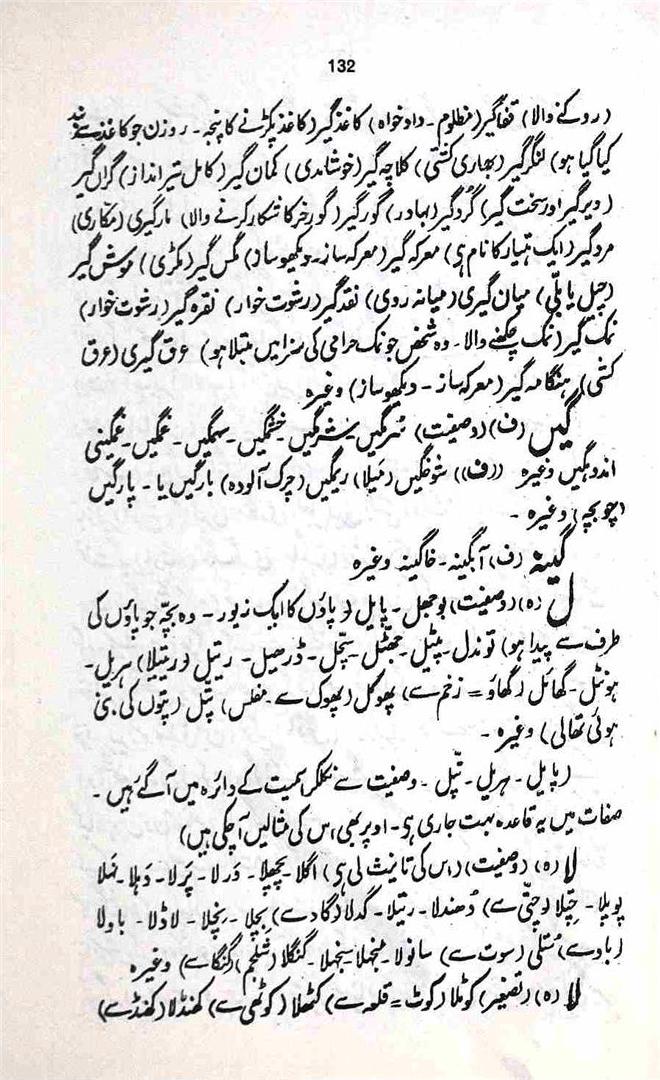 132
(روکنے والا) قفاگیر (مظلوم ۔ داد خواہ) کاغذ گیر (کاغذ پکڑنے کا پنجہ ۔ روزن جو کاغذ سے بند
کیا گیا ہو) لنگر گیر (بھاری کشتی) کلاچہ گیر (خوشامدی) کمان گیر (کامل تیر انداز) گراں گیر
(دیر گیر اور سخت گیر) گردگیر (بہادر) گور گیر (گورخر کا شکار کرنے والا) مار گیری (مکاری)
مرد گیر (ایک ہتیار کا نام ہی) معرکہ گیر (معرکہ ساز ۔ دیکھو ساز) مگس گیر (مکڑی) موش گیر
(چیل یا بلّی) میان گیری (میانہ روی) نقد گیر (رشوت خوار) نقرہ گیر (رشوت خوار)
نمک گیر (نمک چکھنے والا ۔ وہ شخص جو نمک حرامی کی سزا میں مبتلا ہو) عرق گیری (عرق
کشی) ہنگامہ گیر (معرکہ ساز ۔ دیکھو ساز) وغیرہ
گیں (ف) (وصفیت) سُرمگیں ۔ شرمگیں خشمگیں ۔ سہمگیں ۔ غمگیں ۔ غمگینی
اندوہگیں وغیرہ ((ف)) شوخگیں (مَیلا) ریمگیں (چرک آلودہ) بارگیں یا ۔ پارگیں
(چوبچہ) وغیرہ ۔
گینہ (ف) آبگینہ ۔ خاگینہ وغیرہ
ل (ہ) (وصفیت) بوجھل ۔ پایل (پاؤں کا ایک زیور ۔ وہ بچّہ جو پاؤں کی
طرف سے پیدا ہو) توندل ۔ پیٹل ۔ جھٹّل ۔ سچّل ۔ ڈرھیل ۔ ریتیل (ریتیلا) ہریل ۔
ہونٹل ۔ گھائل (گھاؤ = زخم سے) پھوکل (پھوک سے ۔ مفلس) پتّل (پتوں کی بنی
ہوئی تھالی) وغیرہ ۔
(پایل ۔ ہریل ۔ پتّل ۔ وصفیت سے نکلکر اسمیت کے دائرہ میں آگئے ہیں ۔
صفات میں یہ قاعدہ بہت جاری ہی ۔ اوپر بھی اس کی مثالیں آچکی ہیں)
لا (ہ) (وصفیت) (اس کی تانیث لی ہی) اگلا ۔ پچھلا ۔ وَرلا ۔ پَرلا ۔ دَہلا ۔ نہلا
پوپلا ۔ چپلا (چپّی سے) دُھندلا ۔ ریتلا ۔ گدلا (گاد سے) بِچلا ۔ نِچلا ۔ لاڈلا ۔ باولا
(باو سے) سُتلی (سوت سے) سانولا ۔ منجھلا سنجھلا ۔ گنگلا (شلغم) گنگا سے) وغیرہ
لا (ہ) (تصغیر) کوٹلا (کوٹ = قلعہ سے) کٹھلا (کوٹھی سے) کھنڈلا (کھنڈ سے)